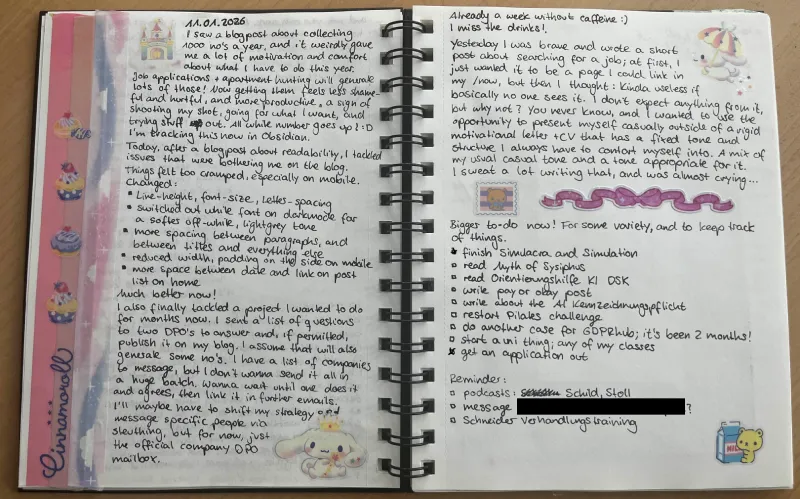 11.01.2026
I saw a blogpost about collecting
1000 no's a year, and it weirdly gave
me a lot of motivation and comfort
about what I have to do this year.
Job applications + apartment hunting will generate
lots of those! Now getting them feels less shame-
ful and hurtful, and more productive, a sign of
shooting my shot, going for what I want, and
trying stuff out. All while number goes up! :D
I'm tracking this now in Obsidian.
Today, after a blogpost about readability, I tackled
issues that were bothering me on the blog.
Things felt too cramped, especially on mobile.
Changed:
• Line-height, font-size, letter-spacing
• switched out white font on darkmode for
a softer off-white, lightgrey tone
• more spacing between paragraphs, and
between titles and everything else
• reduced width, padding on the side on mobile
• more space between date and link on post
list on home
Much better now!
I also finally tackled a project I wanted to do
for months now. I sent a list of questions
to two DPO's to answer and, if permitted,
publish it on my blog. I assume that will also
generate some no's. I have a list of companies
to message, but I don't wanna send it all in
a huge batch. Wanna wait until one does it
and agrees, then link it in further emails.
I'll maybe have to shift my strategy and
message specific people via
sleuthing, but for now, just
the official company DPO
mailbox.
Cinnamoroll
Already a week without caffeine :)
I miss the drinks!
Yesterday I was brave and wrote a short
post about searching for a job; at first, I
just wanted it to be a page I could link in
my /now, but then I thought: Kinda useless if
basically no one sees it. I don't expect anything from it,
but why not? You never know, and I wanted to use the
opportunity to present myself casually outside of a rigid
motivational letter + CV that has a fixed tone and
structure I always have to contort myself into. A mix of
my usual casual tone and a tone appropriate for it.
I sweat a lot writing that, and was almost crying...
Bigger to-do now! For some variety, and to keep track
of things.
finish Simulacra and Simulation
read Myth of Sysiphus
read Orientierungshilfe KI DSK
write pay or okay post
write about the AI Kennzeichnungspflicht
restart Pilates challenge
do another case for GDPRhub; it's been 2 months!
start a uni thing; any of my classes
get an application out
Reminder:
podcasts: Schild, Stoll
message ?
Schneider Verhandlungstraining
MILK